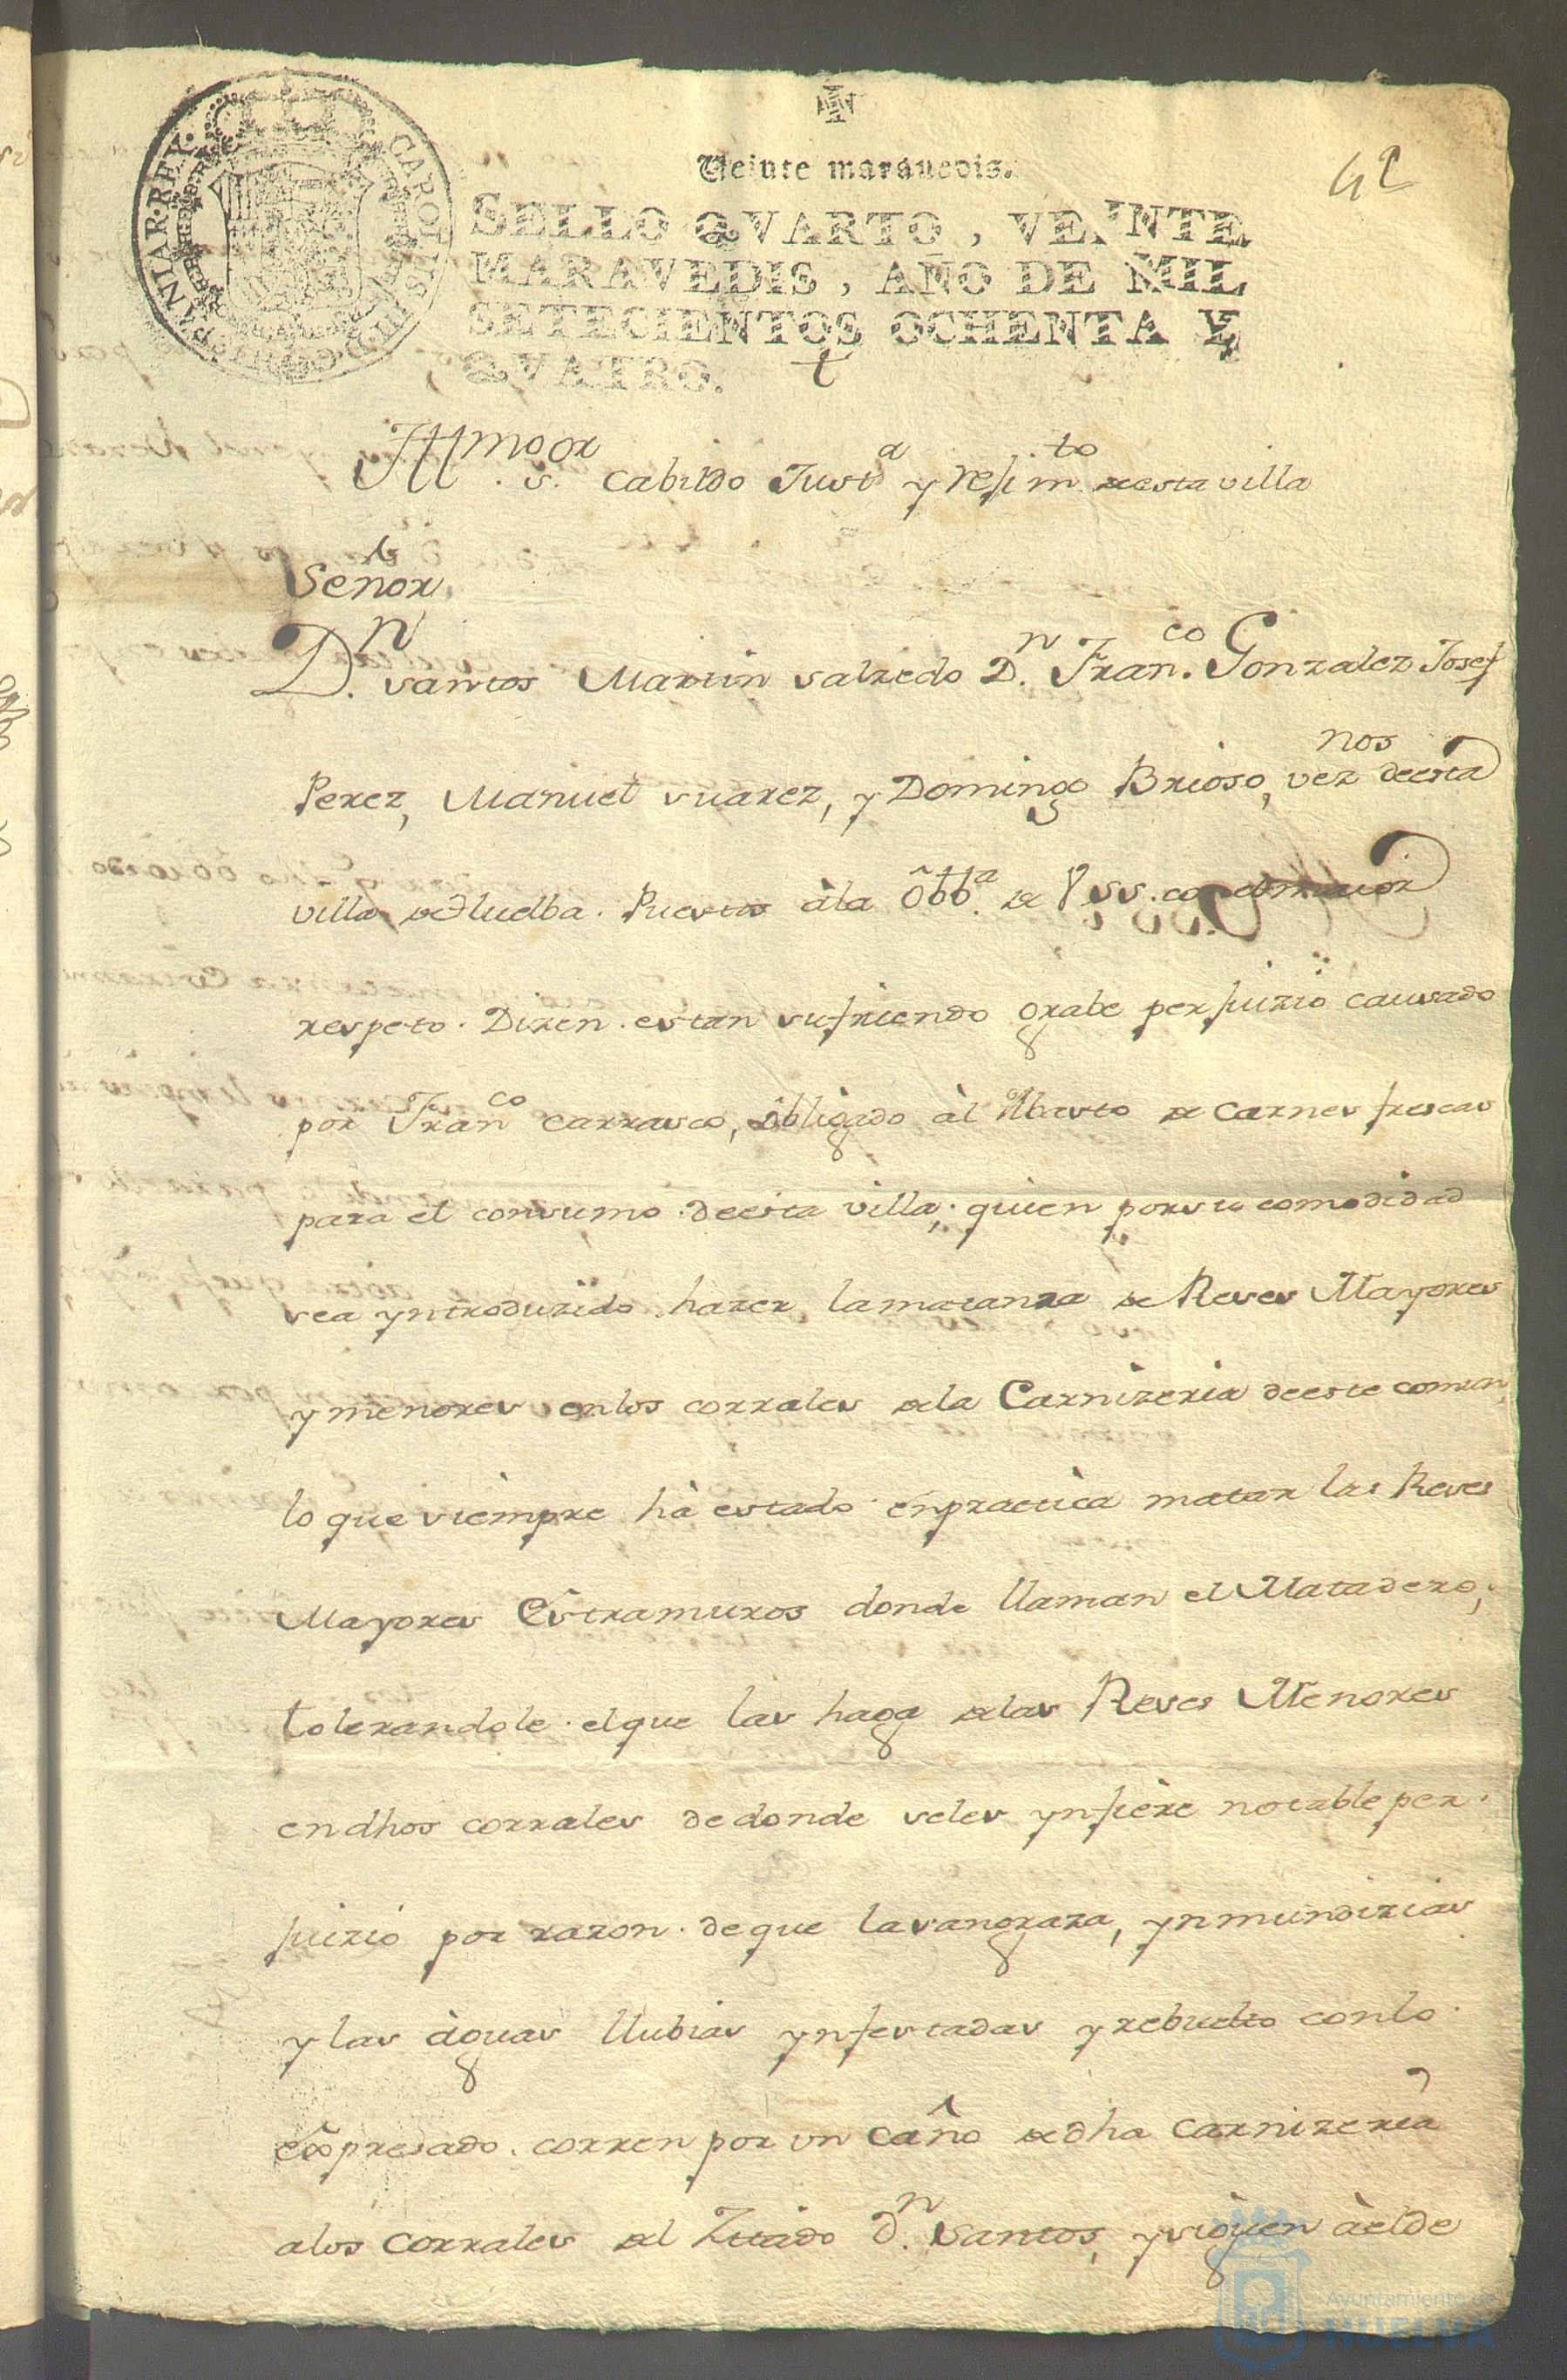 42
Veinte maravedis.
SELLO QVARTO, VEINTE
MARAVEDIS, AÑO DE MIL
SETECIENTOS OCHENTA Y
QVATRO.
CAROLUS III D G HISPANIAR REX
Yllmo Sor. Cabildo Justa y rejimto de esta villa
Señor
Dn. Santos Martin Salzedo Dn. Franco. Gonzalez Josef
Perez, Manuel Suarez, y Domingo Brioso, veznos deesta
villa de Huelba. Puestos àla obba. de V SS. con el maior
respeto. Dizen. estan sufriendo grabe perjuizio causado
por Franco carrasco, obligado àl Abasto de carnes frescas
para el consumo deesta villa; quien porsu comodidad
sea yntroduzido hazer lamatanza de Reses Mayores
y menores enlos corrales dela Carnizeria deeste comun,
lo que sièmpre hà estado enpractica matar las Reses
Mayores Estramuros donde llaman el Matadero,
tolerandole elque las haga delas Reses Menores
endhos corrales dedonde seles ynfière notable per-
juizio por razon deque lasangraza, ynmundizias
y las àguas llubias ynfestadas y rebuelto conlo
espresado corren por vn caño dedha carnizeria
alos corrales del Zitado Dn. Santos, ysiguen àelde
Ayuntamiento de
HUELVA